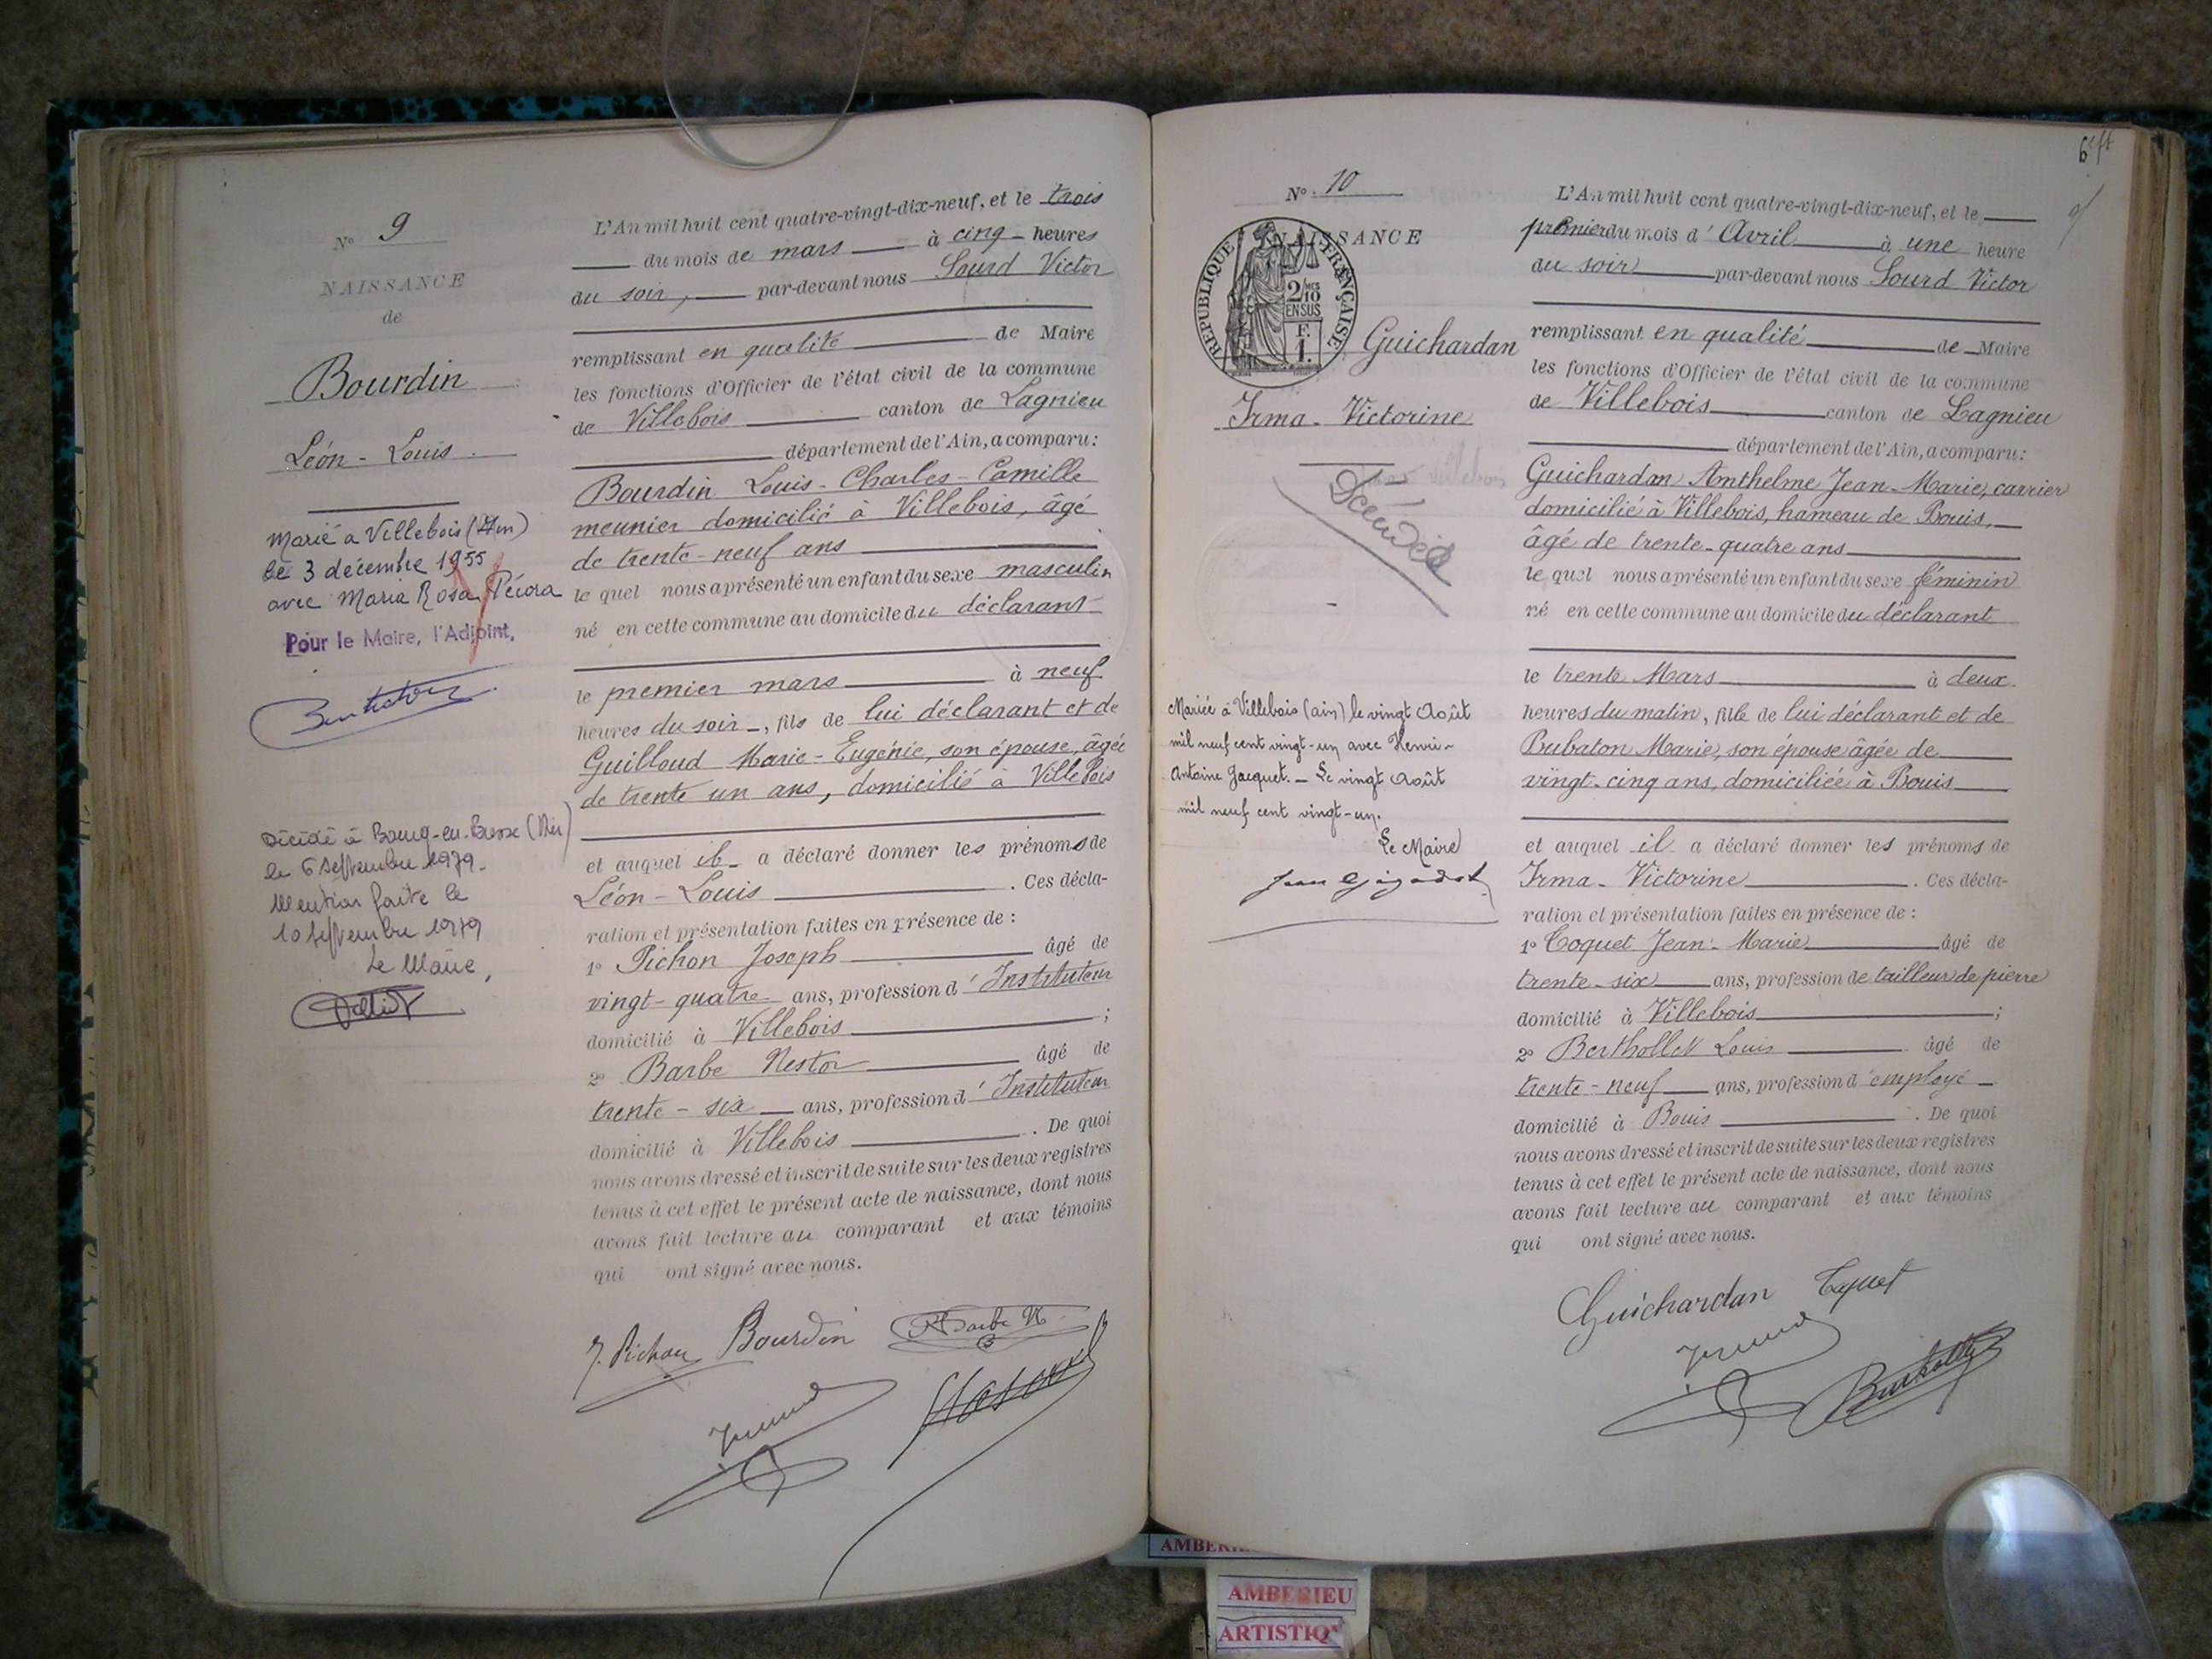 N° 9
NAISSANCE
de
Bourdin
Léon - Louis
Marié a Villebois (Ain)
le 3 décembre 1955
avec Maria Rosa Pécora
Pour le Maire, l'Adjoint,
Décédé à Bourg-en-Bresse (Ain)
le 6 septembre 1979.
Mention faite le
10 septembre 1979
Le Maire,
L'An mil huit cent quatre-vingt-dix-neuf, et le trois
du mois de mars à cinq heures
du soir, par-devant nous Sourd Victor
remplissant en qualité de Maire
les fonctions d'Officier de l'état civil de la commune
de Villebois canton de Lagnieu
département de l'Ain, a comparu:
Bourdin Louis-Charles-Camille
meunier domicilié à Villebois, âgé
de trente-neuf ans
le quel nous a présenté un enfant du sexe masculin
né en cette commune au domicile du déclarant
le premier mars à neuf
heures du soir, fils de lui déclarant et de
Guilloud Marie-Eugénie, son épouse, âgée
de trente un ans, domicilié à Villebois
et auquel il a déclaré donner les prénoms de
Léon-Louis . Ces décla-
ration et présentation faites en présence de :
1° Pichon Joseph âgé de
vingt-quatre ans, profession d'Instituteur
domicilié à Villebois ;
2° Barbe Nestor âgé de
trente-six ans, profession d'Instituteur
domicilié à Villebois . De quoi
nous avons dressé et inscrit de suite sur les deux registres
tenus à cet effet le présent acte de naissance, dont nous
avons fait lecture au comparant et aux témoins
qui ont signé avec nous.
J. Pichon Bourdin Barbe N
6
N° 10
NAISSANCE
RÉPUBLIQUE FRANÇAISE
2/10 MES
EN SUS
F.
1.
Guichardan
Irma - Victorine
Décédée
Mariée à Villebois (ain) le vingt Août
mil neuf cent vingt-un avec Henri-
Antoine Jacquet. - Le vingt Août
mil neuf cent vingt-un.
Le Maire
L'An mil huit cent quatre-vingt-dix-neuf, et le
premier du mois d'Avril à une heure
du soir par-devant nous Sourd Victor
remplissant en qualité de Maire
les fonctions d'Officier de l'état civil de la commune
de Villebois canton de Lagnieu
département de l'Ain, a comparu:
Guichardan Anthelme Jean-Marie, carrier
domicilié à Villebois, hameau de Bouis,
âgé de trente-quatre ans
le quel nous a présenté un enfant du sexe féminin
né en cette commune au domicile du déclarant
le trente Mars à deux
heures du matin, fille de lui déclarant et de
Bubaton Marie, son épouse âgée de
vingt-cinq ans, domiciliée à Bouis
et auquel il a déclaré donner les prénoms de
Irma - Victorine . Ces décla-
ration et présentation faites en présence de :
1° Coquet Jean-Marie âgé de
trente-six ans, profession de tailleur de pierre
domicilié à Villebois ;
2° Berthollet Louis âgé de
trente-neuf ans, profession d'employé
domicilié à Bouis . De quoi
nous avons dressé et inscrit de suite sur les deux registres
tenus à cet effet le présent acte de naissance, dont nous
avons fait lecture au comparant et aux témoins
qui ont signé avec nous.
Guichardan Coquet
AMBERIEU
ARTISTIQ